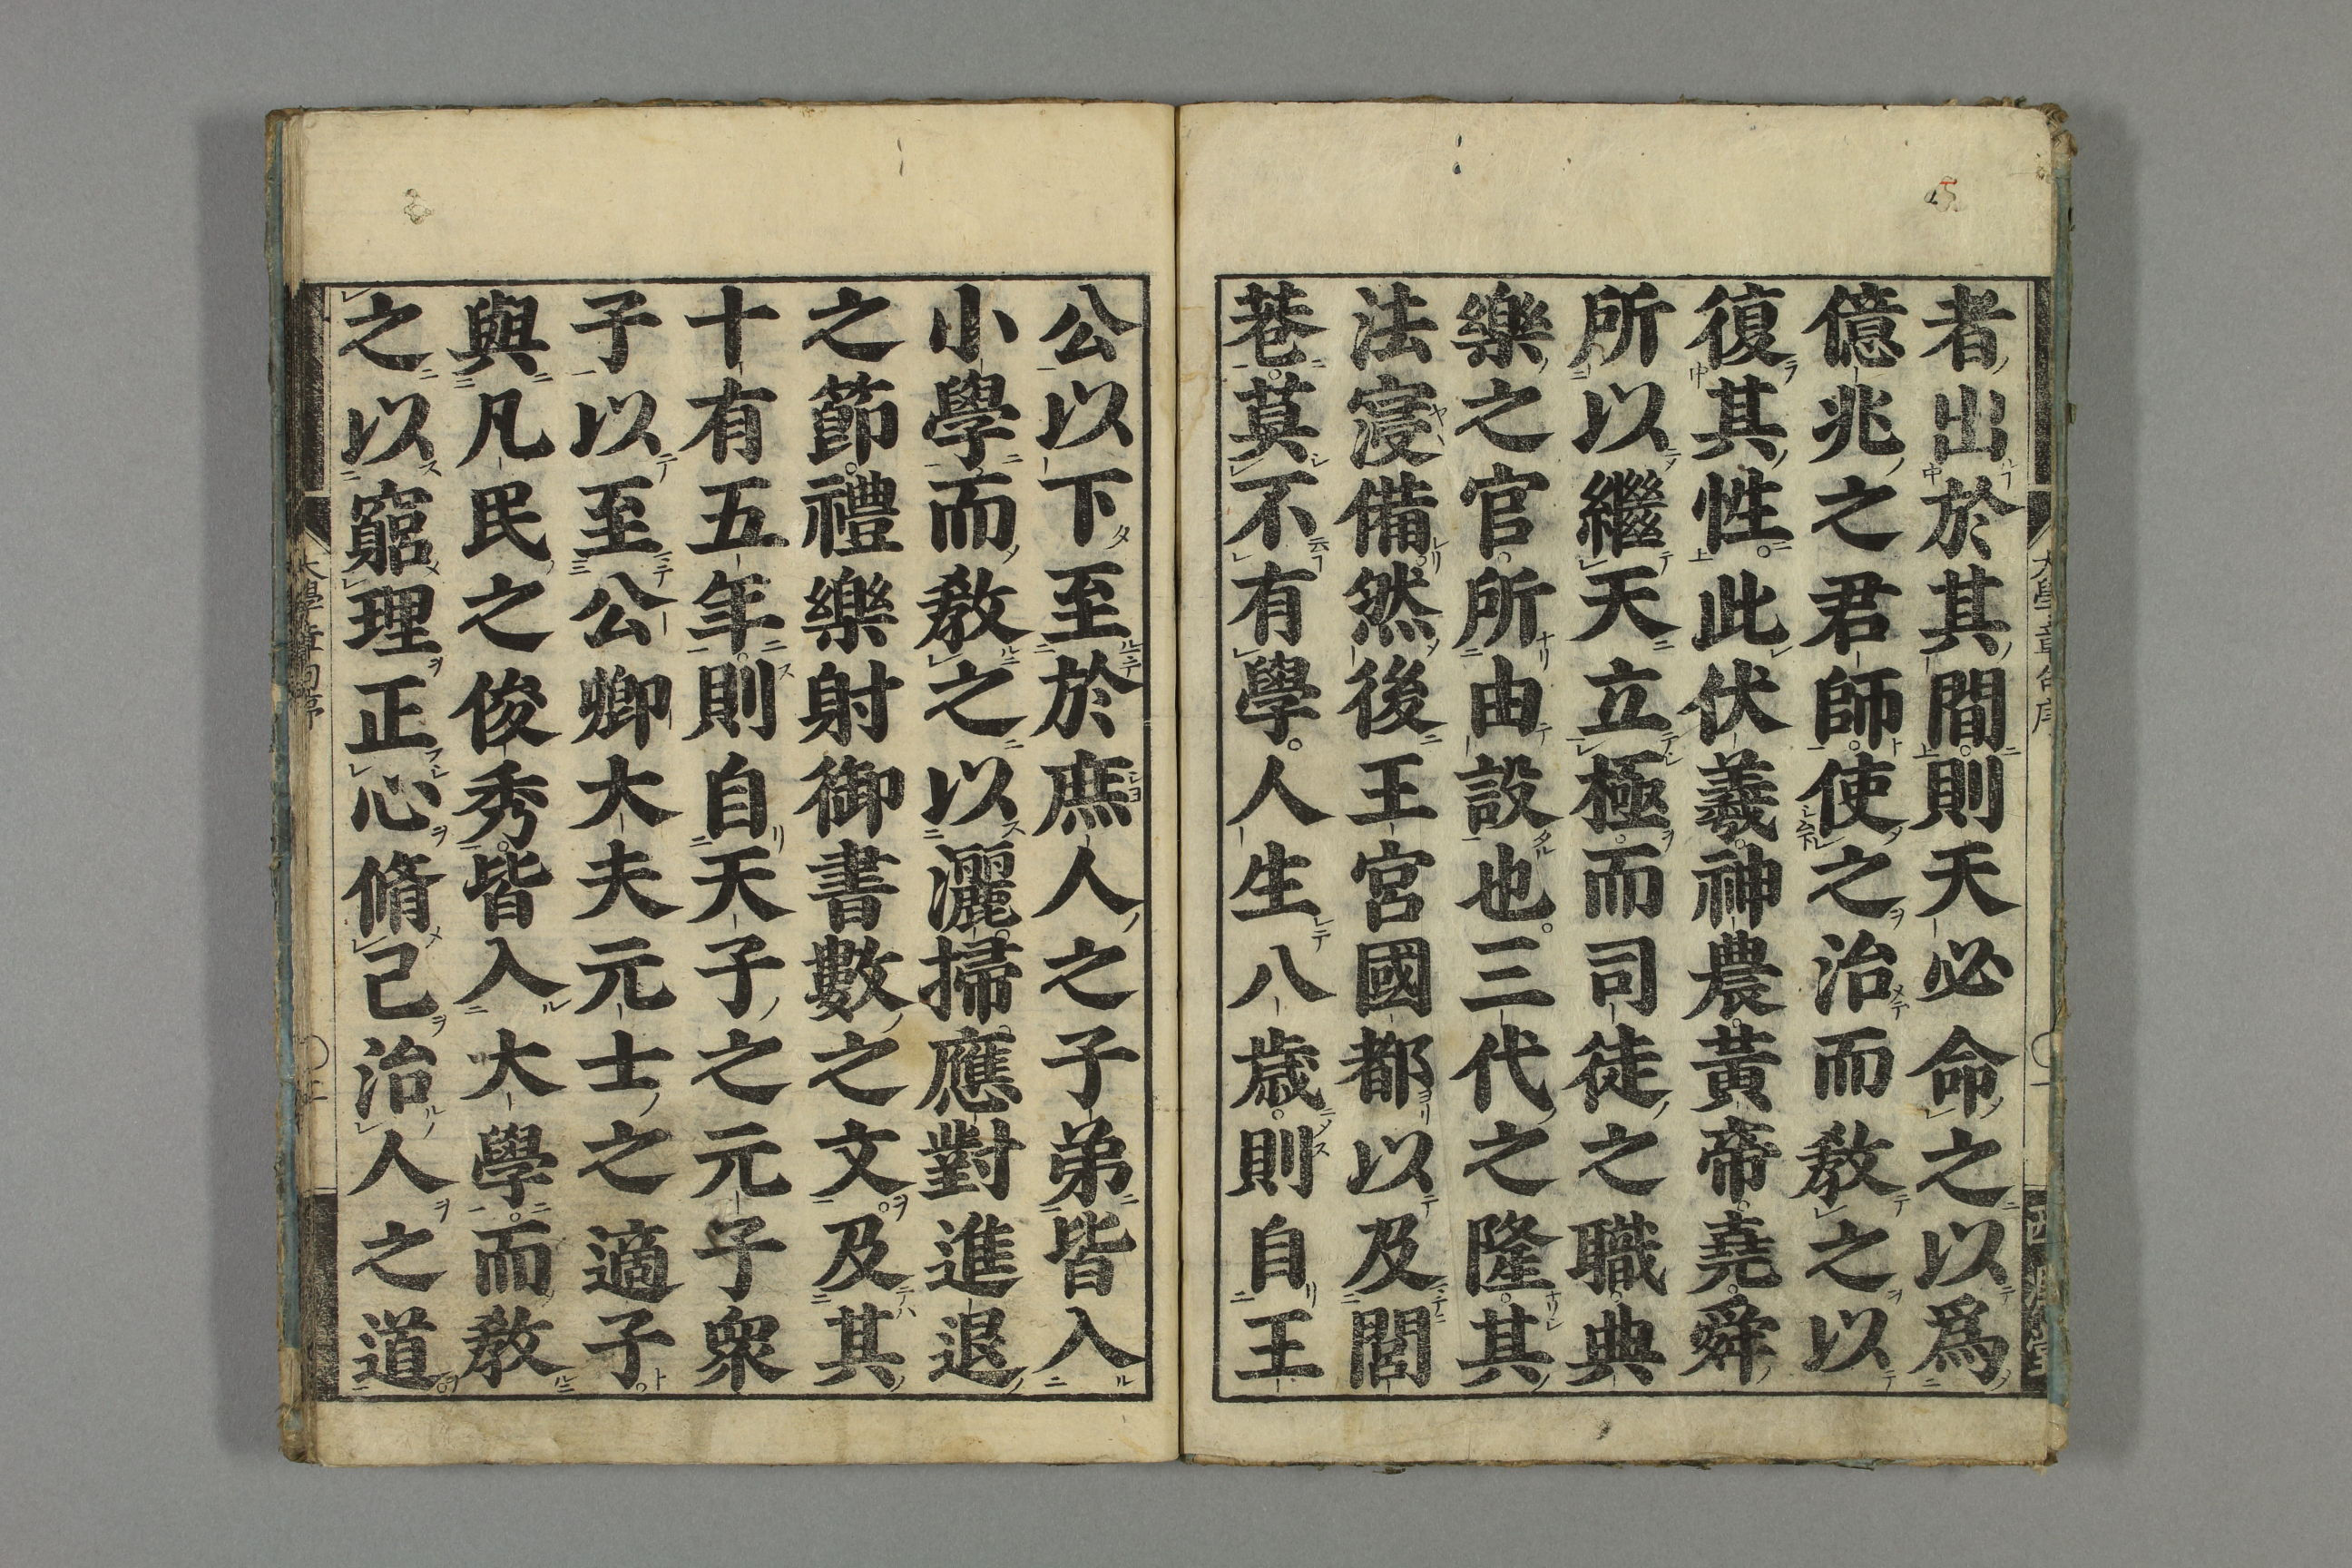 者出於其間則天必命之以爲
億兆之君師使之治而教之以
復其性此伏羲神農黃帝堯舜
所以繼天立極而司徒之職典
樂之官所由設也三代之隆其
法寖備然後王宮國都以及閭
巷莫不有學人生八歲則自王
公以下至於庶人之子弟皆入
小學而教之以灑掃應對進退
之節禮樂射御書數之文及其
十有五年則自天子之元子衆
子以至公卿大夫元士之適子
與凡民之俊秀皆入大學而教
之以窮理正心脩己治人之道
大學章句序